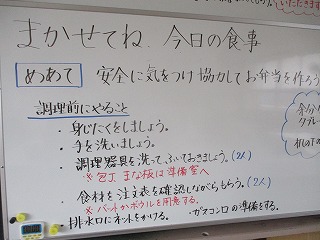 いただきます
まかせてね 今日の食事
めあて 安全に気をつけ協力してお弁当を作ろう
調理前にやること
・身じたくをしましょう。
・手を洗いましょう。
・調理器具を洗って、ふいておきましょう。(2人)
※包丁 まな板は準備室へ
・食材を注文表を確認しながらもらう。(2人)
※バットかボウルを用意する。
・排水口にネットをかける。 ・ガスコンロの準備をする。